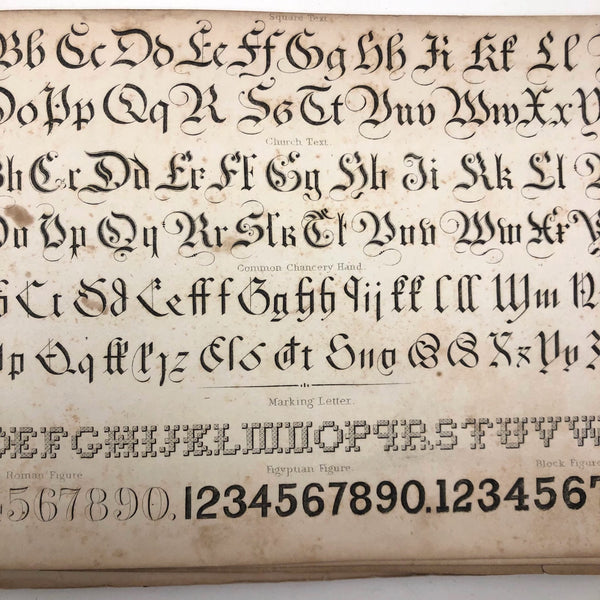 Square Text.
Bb Cc Dd Ee Ff Gg Hh Ii Kk Ll
Oo Pp Qq R Ss Tt Vuv Ww Xx Y
Church Text.
Bb Cc Dd Ee Ff Gg Hh Ii Kk Ll
Oo Pp Qq Rr Sſs Tt Vuv Ww Xx Y
Common Chancery Hand.
Cc Dd Ee ff f Gg hh ij kk Lll Mm N
p Qq Sſs tt Vuv Xx Yy Z
Marking Letter.
DEFGHIJKLMNOPQRSTUVW
Roman Figure Egyptian Figure. Block Figure
4567890. 1234567890. 1234567